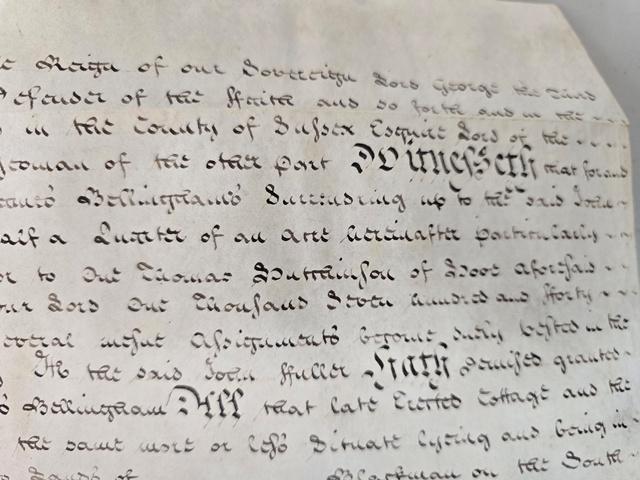 e Reign of our Sovereign Lord George the Third
Defender of the ffaith and so forth and in the
in the County of Sussex Esquire Lord of the
Yeoman of the other part Witnesseth that for and
Bellingham's Surrendring up to the said John
alf a Quarter of an acre hereinafter particularly
or to One Thomas Hutchinson of Hove aforesaid
our Lord One Thousand Seven hundred and fforty
everal mesne Assignments become duly vested in the
the said John ffuller Hath demised granted
Bellingham All that late Erected Cottage and the
the same more or less Situate lyeing and being in
Lands of Blackman on the South